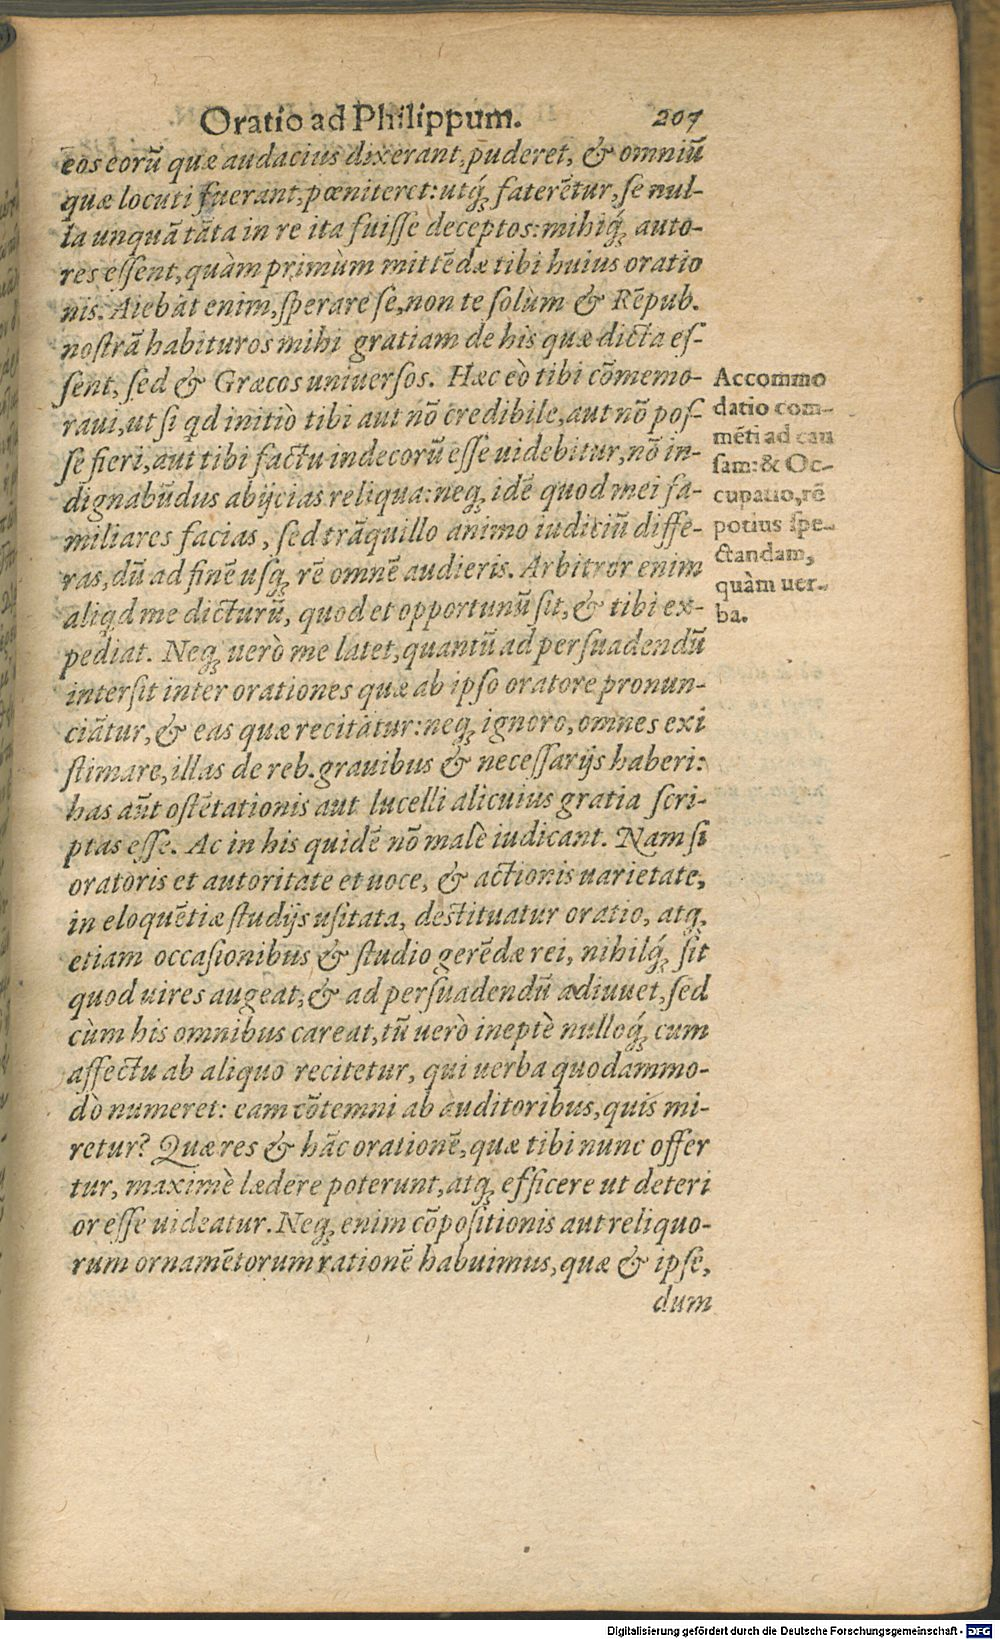 Oratio ad Philippum. 207
eos eorū quæ audacius dixerant, puderet, & omniū
quæ locuti fuerant, pœniteret: utq́ꝫ faterētur, se nul-
la unquā tāta in re ita fuisse deceptos: mihiq́ꝫ auto-
res essent, quàm primùm mittēdæ tibi huius oratio
nis. Aiebāt enim, sperare se, non te solùm & Rēpub.
nostrā habituros mihi gratiam de his quæ dicta es-
sent, sed & Græcos uniuersos. Hæc eò tibi cōmemo-
raui, ut si qd initiò tibi aut nō credibile, aut nō pos-
se fieri, aut tibi factu indecorū esse uidebitur, nō in-
dignabūdus abijcias reliqua: neqꝫ idē quod mei fa-
miliares facias, sed trāquillo animo iudiciū diffe-
ras, dū ad finē usqꝫ rē omnē audieris. Arbitror enim
aliqd me dicturū, quod et opportunū sit, & tibi ex-
pediat. Neqꝫ uerò me latet, quantū ad persuadendū
intersit inter orationes quæ ab ipso oratore pronun-
ciātur, & eas quæ recitātur: neqꝫ ignoro, omnes exi
stimare, illas de reb. grauibus & necessarijs haberi:
has aūt ostētationis aut lucelli alicuius gratia scri-
ptas esse. Ac in his quidē nō malè iudicant. Nam si
oratoris et autoritate et uoce, & actionis uarietate,
in eloquētiæ studijs usitata, destituatur oratio, atqꝫ
etiam occasionibus & studio gerēdæ rei, nihilq́ꝫ sit
quod uires augeat, & ad persuadendū adiuuet, sed
cùm his omnibus careat, tū uerò ineptè nulloq́ꝫ cum
affectu ab aliquo recitetur, qui uerba quodammo-
dò numeret: eam cōtemni ab auditoribus, quis mi-
retur? Quæ res & hāc orationē, quæ tibi nunc offer
tur, maximè lædere poterunt, atqꝫ efficere ut deteri
or esse uideatur. Neqꝫ enim cōpositionis aut reliquo-
rum ornamētorum rationē habuimus, quæ & ipse,
dum
Accommo
datio com-
mēti ad cau
sam: & Oc-
cupatio, rē
potius spe-
ctandam,
quàm uer-
ba.
Digitalisierung gefördert durch die Deutsche Forschungsgemeinschaft - DFG